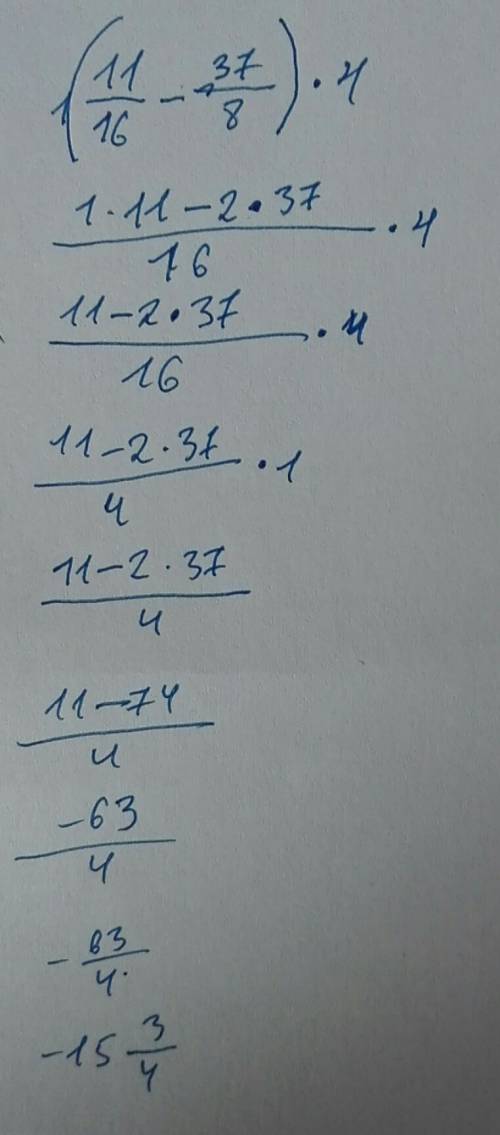 (11/16 - 37/8) · 4
(1·11 - 2·37)/16 · 4
(11 - 2·37)/16 · 4
(11 - 2·37)/4 · 1
(11 - 2·37)/4
(11 - 74)/4
-63/4
-63/4
-15 3/4